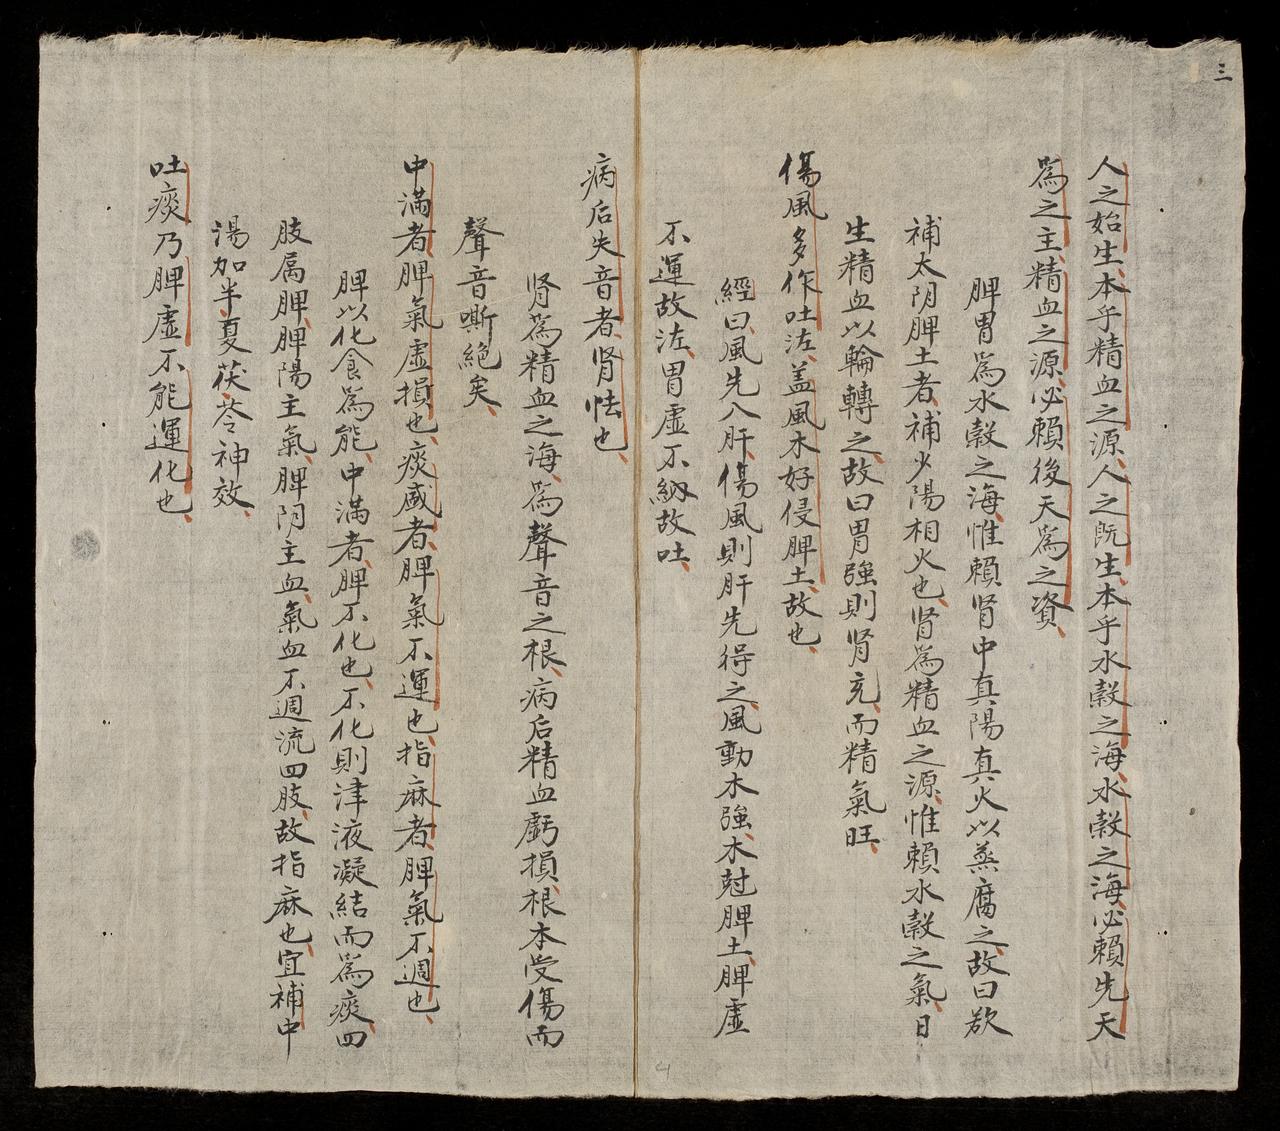 三
人之始生、本乎精血之源、人之既生、本乎水穀之海、水穀之海、必賴先天
為之主、精血之源、必賴後天為之資、
脾胃為水穀之海、惟賴肾中真陽真火以蒸腐之、故曰欲
補太阴脾土者、補少陽相火也、肾為精血之源、惟賴水穀之氣、日
生精血以輪轉之、故曰胃強則肾充、而精氣旺、
傷風多作吐泣、盖風木好侵脾土、故也、
經曰、風先入肝、傷風則肝先得之、風動木強、木尅脾土、脾虚
不運故泣、胃虚不納故吐、
病后失音者、肾怯也、
肾為精血之海、為聲音之根、病后精血虧損、根本受傷而
聲音嘶絕矣、
中滿者、脾氣虚損也、痰盛者、脾氣不運也、指麻者、脾氣不週也、
脾以化食為能、中滿者、脾不化也、不化則津液凝結而為痰、四
肢属脾、脾陽主氣、脾阴主血、氣血不週流四肢、故指麻也、宜補中
湯加半夏茯苓神效、
吐痰乃脾虚不能運化也、